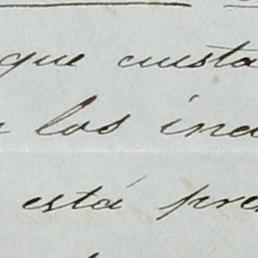 que custa
los ina
está pre